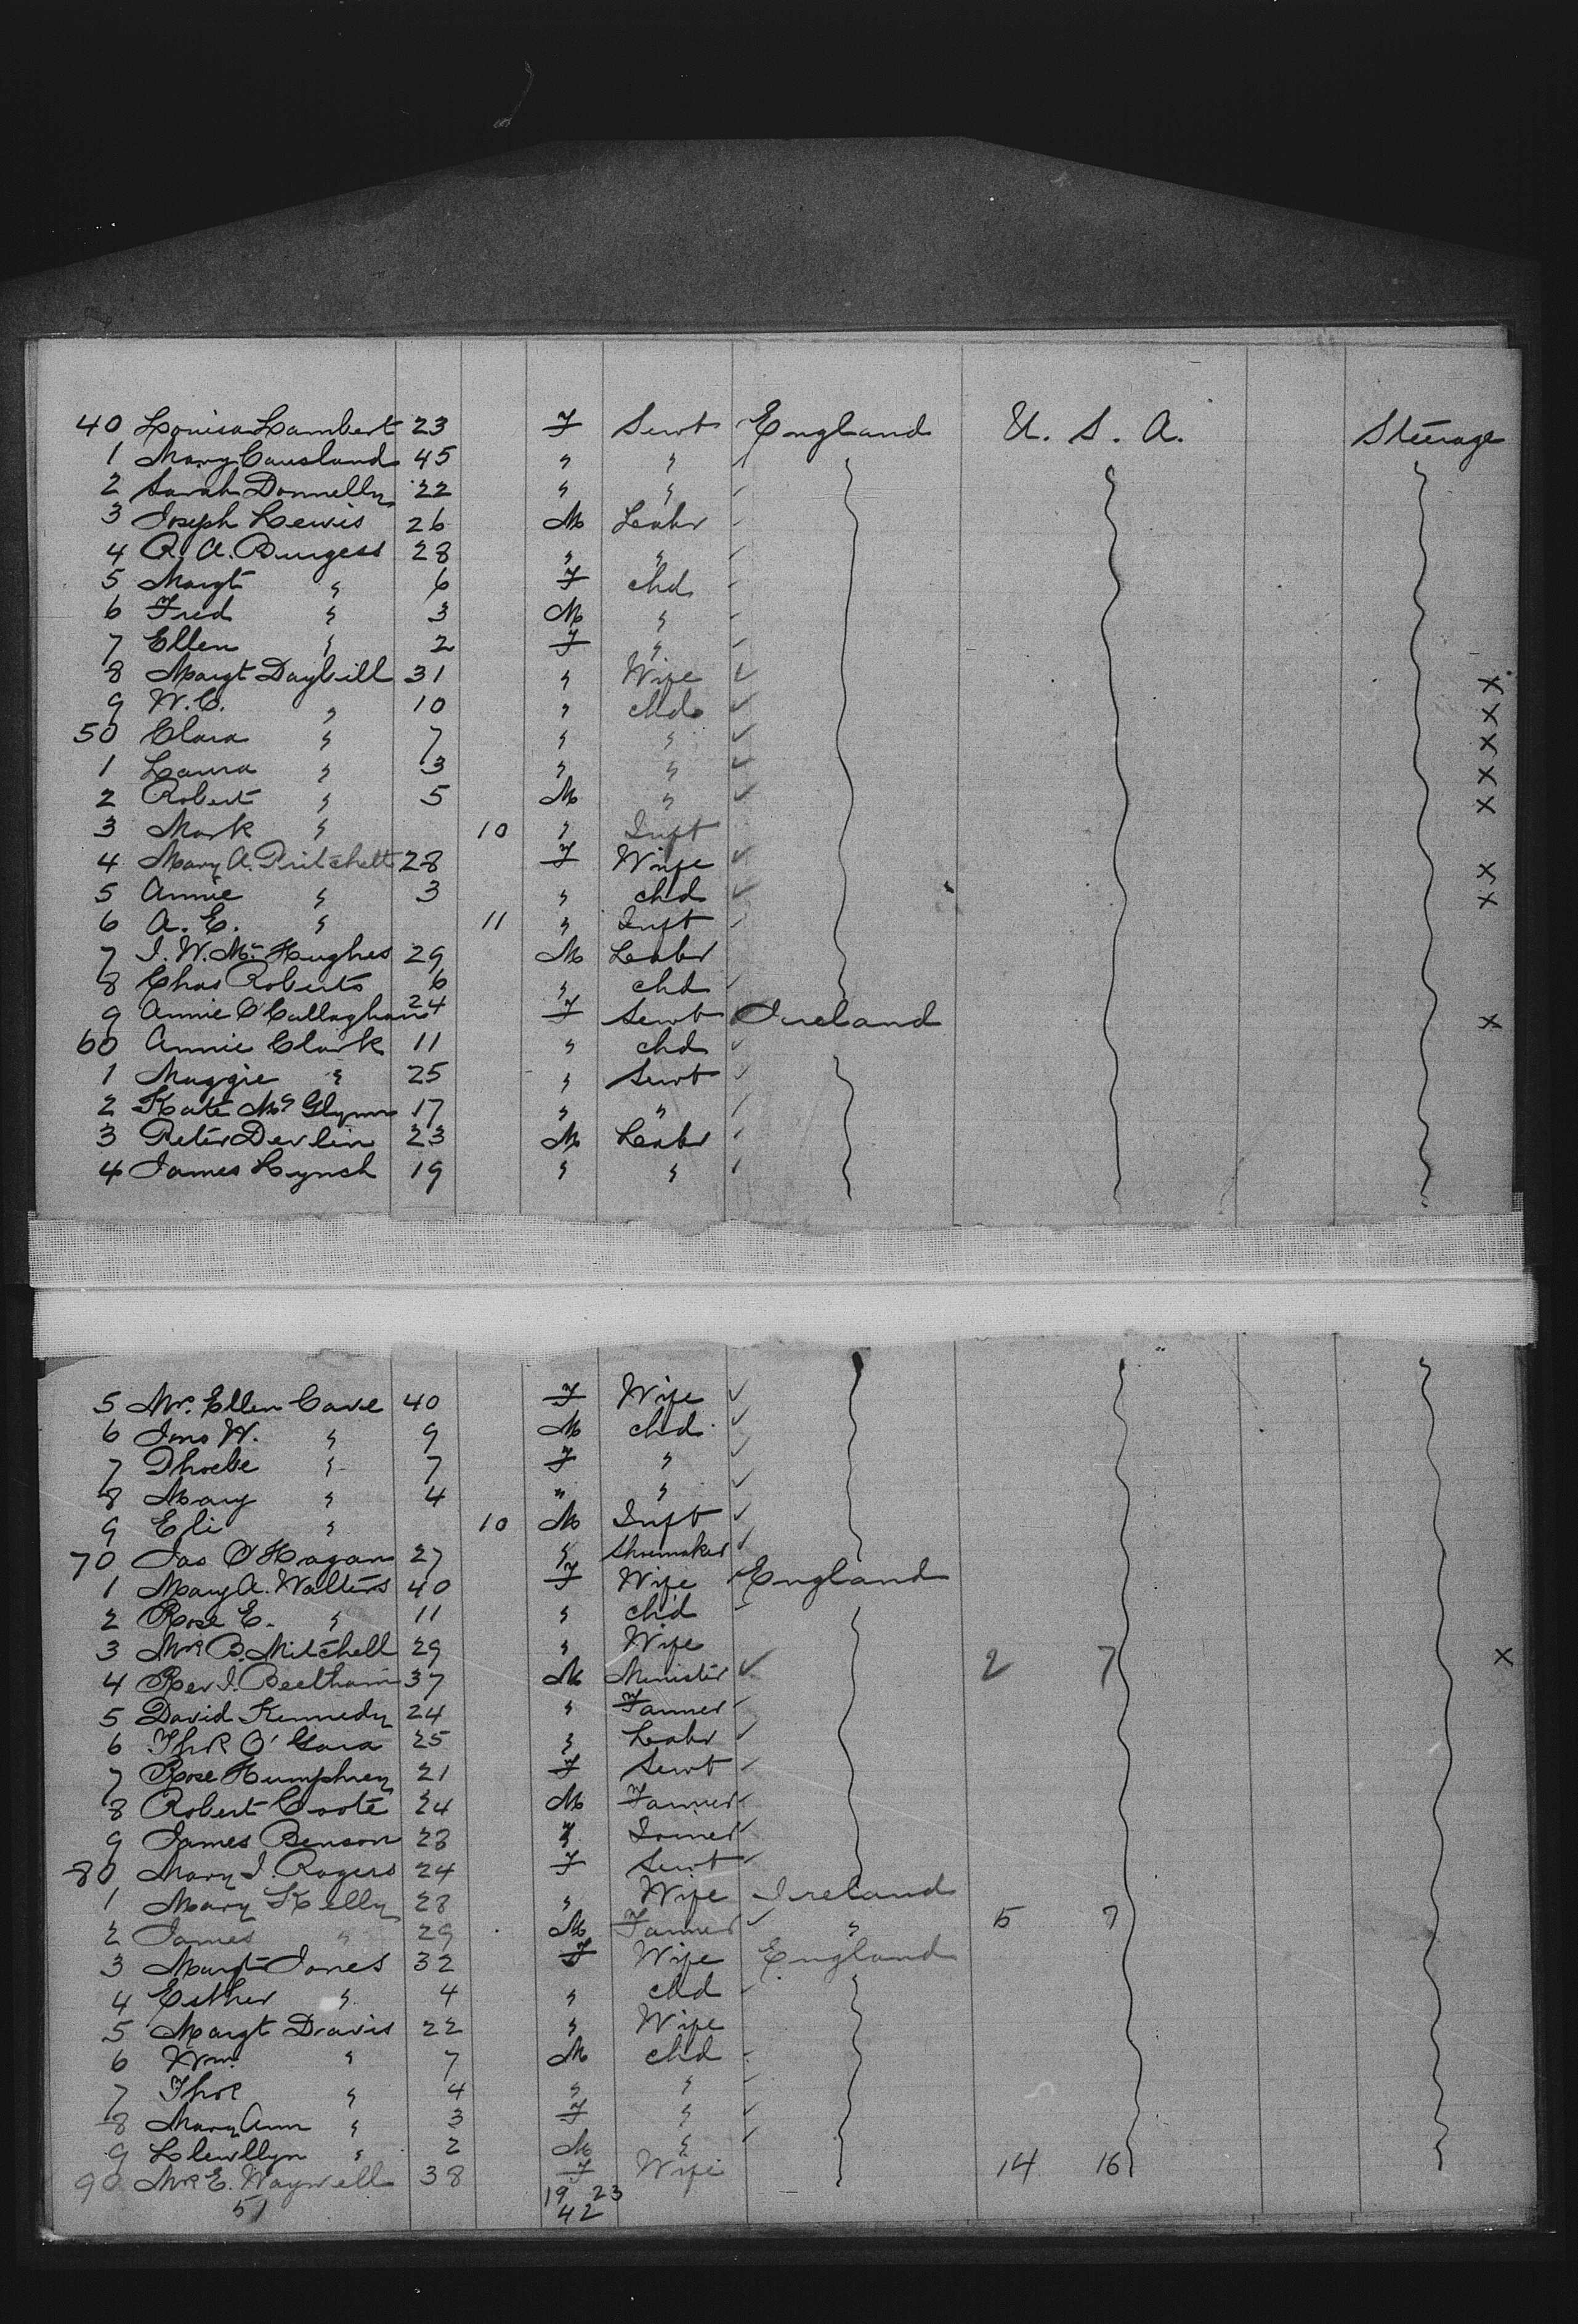 40 Louisa Lambert 23 F Servt England U. S. A. Steerage
1 Mary Causland 45 " "
2 Sarah Donnelly 22 " "
3 Joseph Lewis 26 M Labr
4 R. A. Burgess 28 " "
5 Margt " 6 F chd
6 Fred " 3 M "
7 Ellen " 2 F "
8 Margt Daybill 31 " Wife X
9 W. C. " 10 " chd X
50 Clara " 7 " " X
1 Laura " 3 " " X
2 Robert " 5 M " X
3 Mark " 10 " Inft
4 Mary A. Pritchett 28 F Wife X
5 Annie " 3 " chd X
6 A. E. " 11 " Inft
7 J. W. Mc Hughes 29 M Labr
8 Chas Roberts 6 " chd
9 Annie O'Callaghan 24 F Servt Ireland X
60 Annie Clark 11 " chd
1 Maggie " 25 " Servt
2 Kate Mc Glynn 17 " "
3 Peter Devlin 23 M Labr
4 James Lynch 19 " "
5 Mrs. Ellen Cave 40 F Wife
6 Jno W. " 9 M chd
7 Phoebe " 7 F "
8 Mary " 4 " "
9 Eli " 10 M Inft
70 Jas O'Hagan 27 " Shoemaker
1 Mary A. Walters 40 F Wife England
2 Rose E. " 11 " chd
3 Mrs B. Mitchell 29 " Wife X
4 Rev J. Beetham 37 M Minister 2 7
5 David Kennedy 24 " Farmer
6 Thos O'Gara 25 " Labr
7 Rose Humphrey 21 F Servt
8 Robert Coote 24 M Farmer
9 James Benson 23 " Joiner
80 Mary J. Rogers 24 F Servt
1 Mary Kelly 28 " Wife Ireland
2 James " 29 M Farmer " 15 7
3 Margt Jones 32 F Wife England
4 Esther " 4 " chd
5 Margt Davis 22 " Wife
6 Wm. " 7 M chd
7 Thos " 4 " "
8 Mary Ann " 3 F "
9 Llewllyn " 2 M "
90 Mrs E. Waywell 38 F Wife 14 16
51 19 23
42